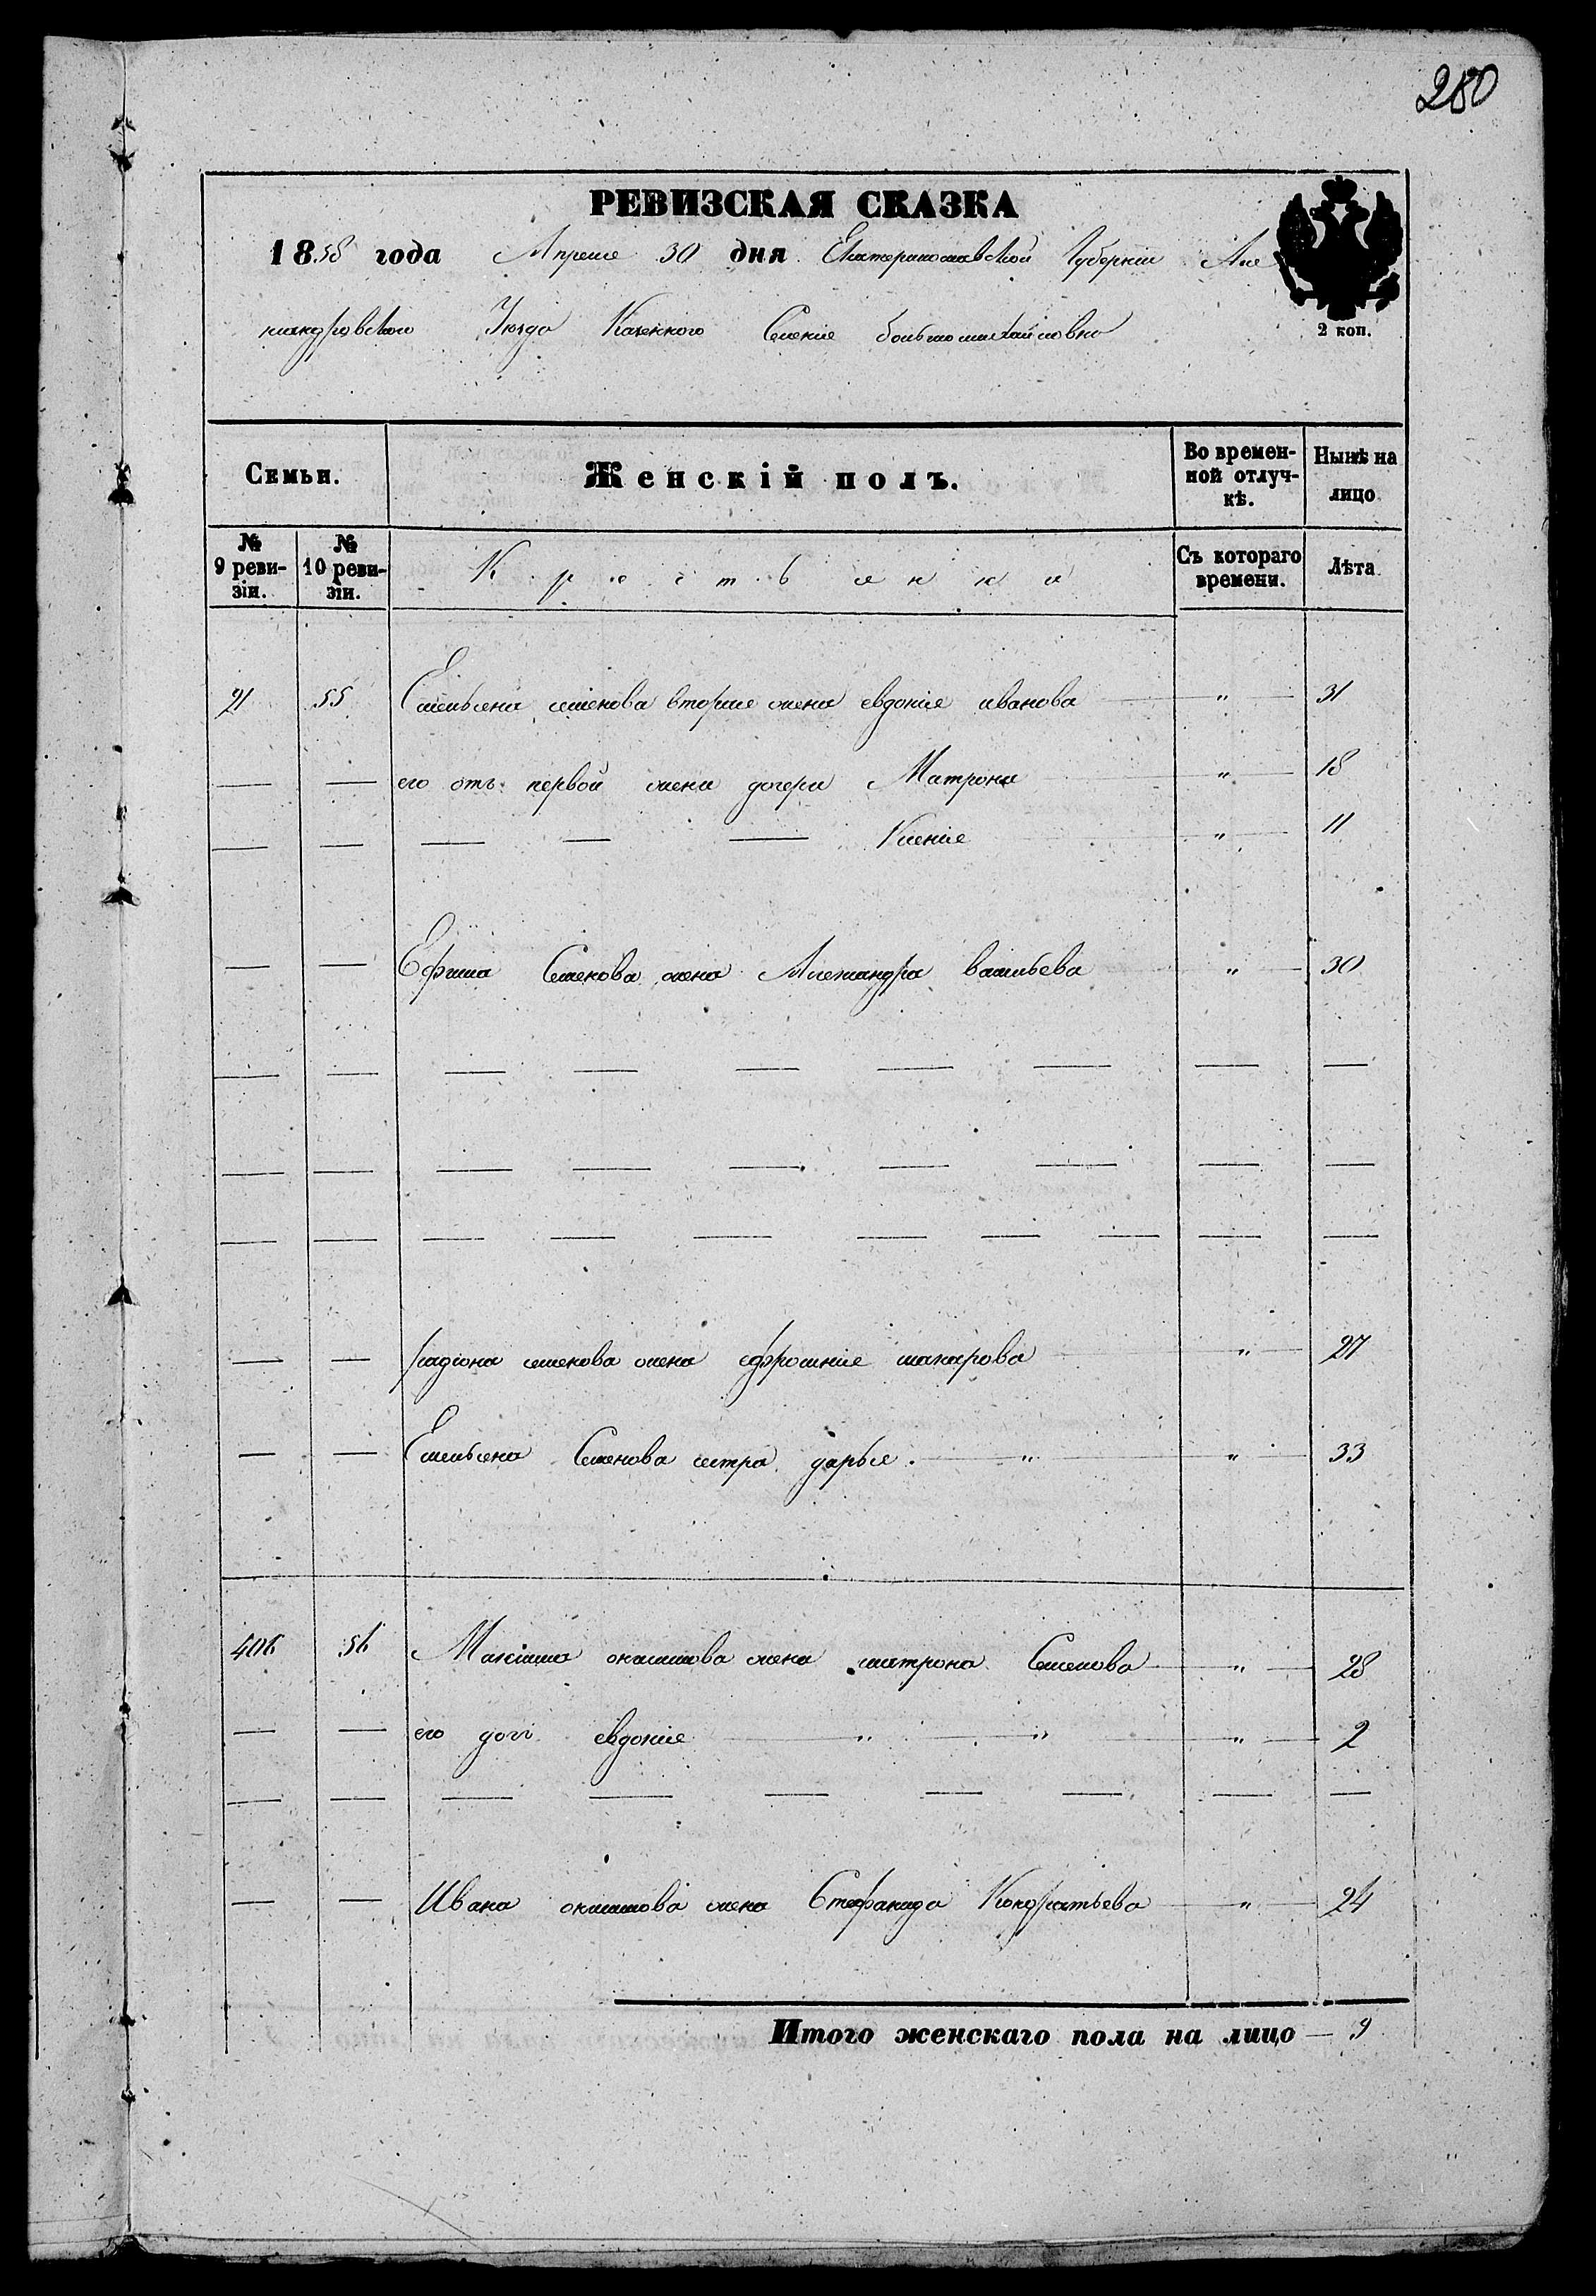 280
РЕВИЗСКАЯ СКАЗКА
1858 года Апреля 30 дня Екатеринославской Губерніи Але
ксандровского Уезда Казенного Селенія большомихайловки
2 коп.
Семьи. Женскій полъ. Во времен- Нынѣ на
ной отлуч- лицо
кѣ.
№ № Крестьянки Съ котораго Лѣта
9 реви- 10 реви- времени.
зіи. зіи.
21 55 Емельяна семенова вторая жена евдокія иванова — " — 31
— — его отъ первой жены дочери Матрона " — 18
— — — — — Ксенія " — 11
— — Ефима Семенова жена Александра васильева " — 30
— — — — — — — — —
— — — — — — — — —
— — — — — — — — — —
— — радіона семенова жена ефросинія макарова " — 27
— — Емельяна Семенова сестра дарья. — " — " — 33
406 56 Максима онисимова жена матрона Семенова — " — 28
— — его дочь евдокія — " — " — " — 2
— — — — — — — — —
— — Ивана онисимова жена Стефанида Кондратьева — " — 24
Итого женскаго пола на лицо — 9